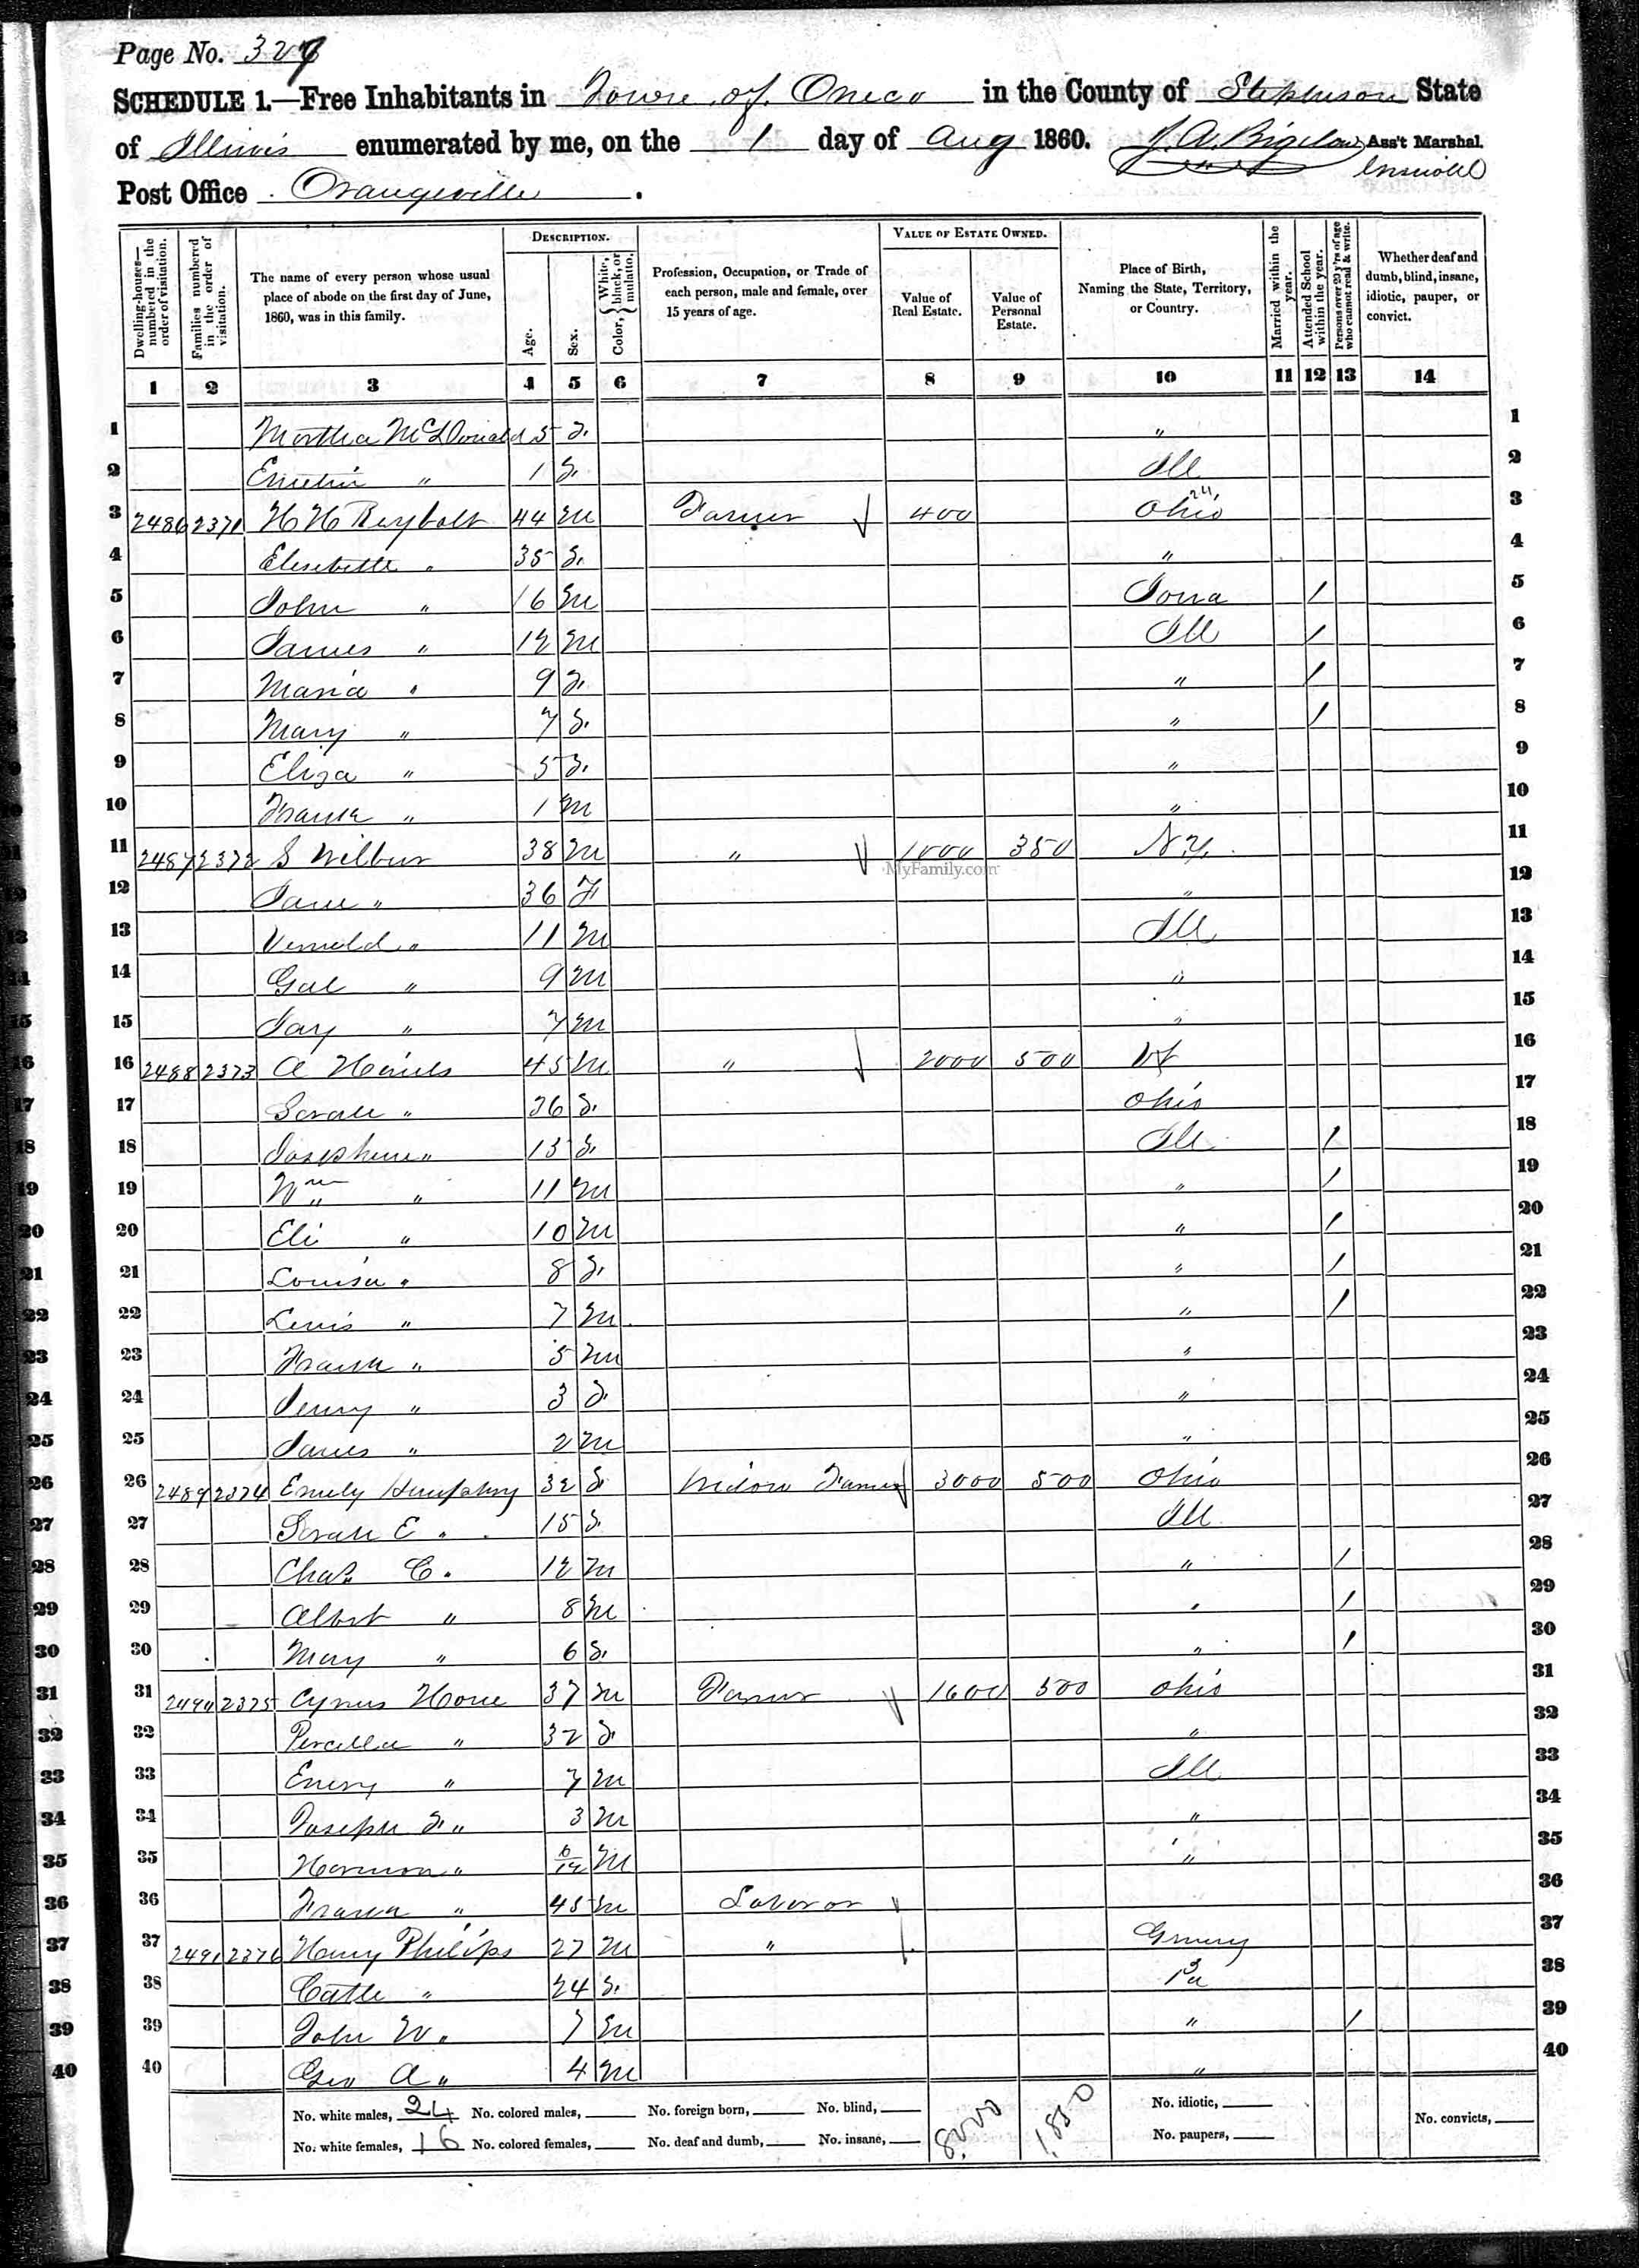 Page No. 327
SCHEDULE 1.—Free Inhabitants in Town of Oneco in the County of Stephenson State
of Illinois enumerated by me, on the 1 day of Aug 1860. J. A. Bigelow Ass't Marshal.
Post Office Orangeville.
DESCRIPTION. VALUE OF ESTATE OWNED.
Dwelling-houses—numbered in the order of visitation. Families numbered in the order of visitation. The name of every person whose usual place of abode on the first day of June, 1860, was in this family. Age. Sex. Color, { White, black, or mulatto. Profession, Occupation, or Trade of each person, male and female, over 15 years of age. Value of Real Estate. Value of Personal Estate. Place of Birth, Naming the State, Territory, or Country. Married within the year. Attended School within the year. Persons over 20 y'rs of age who cannot read & write. Whether deaf and dumb, blind, insane, idiotic, pauper, or convict.
1 2 3 4 5 6 7 8 9 10 11 12 13 14
1 Martha McDonald 5 F. " 1
2 " 1 F. Ill 2
3 2486 2371 H H Raybolt 44 M Farmer 400 Ohio 24 3
4 Elisebeth " 35 F. " 4
5 John " 16 M Iowa / 5
6 James " 12 M Ill / 6
7 Maria " 9 F. " / 7
8 Mary " 7 F. " / 8
9 Eliza " 5 F. " 9
10 Frank " 1 M " 10
11 2487 2372 S Wilbur 38 M " 1000 350 N Y. 11
MyFamily.com
12 Jane " 36 F " 12
13 " 11 M Ill 13
14 " 9 M " 14
15 Jay " 7 M " 15
16 2488 2373 A 45 M " 2000 500 Vt 16
17 Sarah " 36 F. Ohio 17
18 Josephine " 13 F. Ill / 18
19 Wm " 11 M " / 19
20 Eli " 10 M " / 20
21 Louisa " 8 F. " / 21
22 Lewis " 7 M " / 22
23 Frank " 5 M " 23
24 " 3 F. " 24
25 James " 2 M " 25
26 2489 2374 Emily Humphry 32 F Widow Farmer 3000 500 Ohio 26
27 Sarah E " 15 F. Ill 27
28 Chas. C. " 12 M " / 28
29 Albert " 8 M " / 29
30 Mary " 6 F. " / 30
31 2490 2375 Cyrus 37 M Farmer 1600 500 Ohio 31
32 Percilla " 32 F " 32
33 Emery " 7 M Ill 33
34 Joseph F. " 3 M " 34
35 Harmon " 6/12 M " 35
36 " 45 M Laboror 36
37 2491 2376 Henry Philips 27 M " Grmny 37
38 Cath " 24 F. Pa 3 38
39 John W. " 7 M " / 39
40 Geo A " 4 M " 40
No. white males, 24 No. colored males, No. foreign born, No. blind, 8000 1,850 No. idiotic, No. convicts,
No. white females, 16 No. colored females, No. deaf and dumb, No. insane, No. paupers,